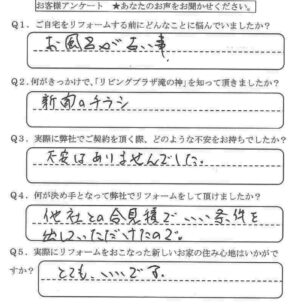 お客様アンケート ★あなたのお声をお聞かせください。
Q1．ご自宅をリフォームする前にどんなことに悩んでいましたか？
お風呂が古い事
Q2．何がきっかけで、「リビングプラザ滝の神」を知って頂きましたか？
新聞のチラシ
Q3．実際に弊社でご契約を頂く際、どのような不安をお持ちでしたか？
不安はありませんでした。
Q4．何が決め手となって弊社でリフォームをして頂けましたか？
他社との合見積で、いい条件を
出していただけたので。
Q5．実際にリフォームをおこなった新しいお家の住み心地はいかがで
すか？
とても、いいです。